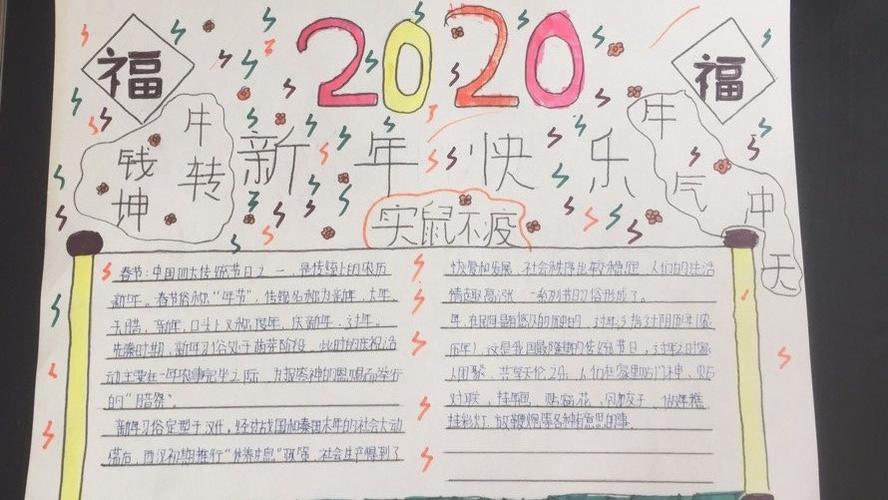 2020
福
福
牛转
钱坤
新年快乐
牛气冲天
实鼠不疫
春节:中国四大传统节日之一,是传统上的农历
新年。春节俗称"年节",传统名称为新年、大年、
天腊、新年,口头上又称度年、庆新年、过年。
先秦时期,新年习俗处于萌芽阶段。此时的庆祝活
动主要在一年农事完毕之际,为报答神的恩赐而举行
的"腊祭"。
新年习俗定型于汉代。经过战国和秦国末年的社会大动
荡后,西汉初期推行"休养生息"政策,社会生产得到了
恢复和发展,社会秩序比较稳定,人们的生活
情趣高涨,一系列节日习俗形成了。
年,在民间是悠久的历史的,过年乃指过阴历年(农
历年),这是我国最隆重的传统节日,过年之时家
人团聚、共享天伦之乐,人们在家里贴门神、贴
对联、挂年画、贴窗花、、做年糕
挂彩灯、放鞭炮等各种有意思的事。